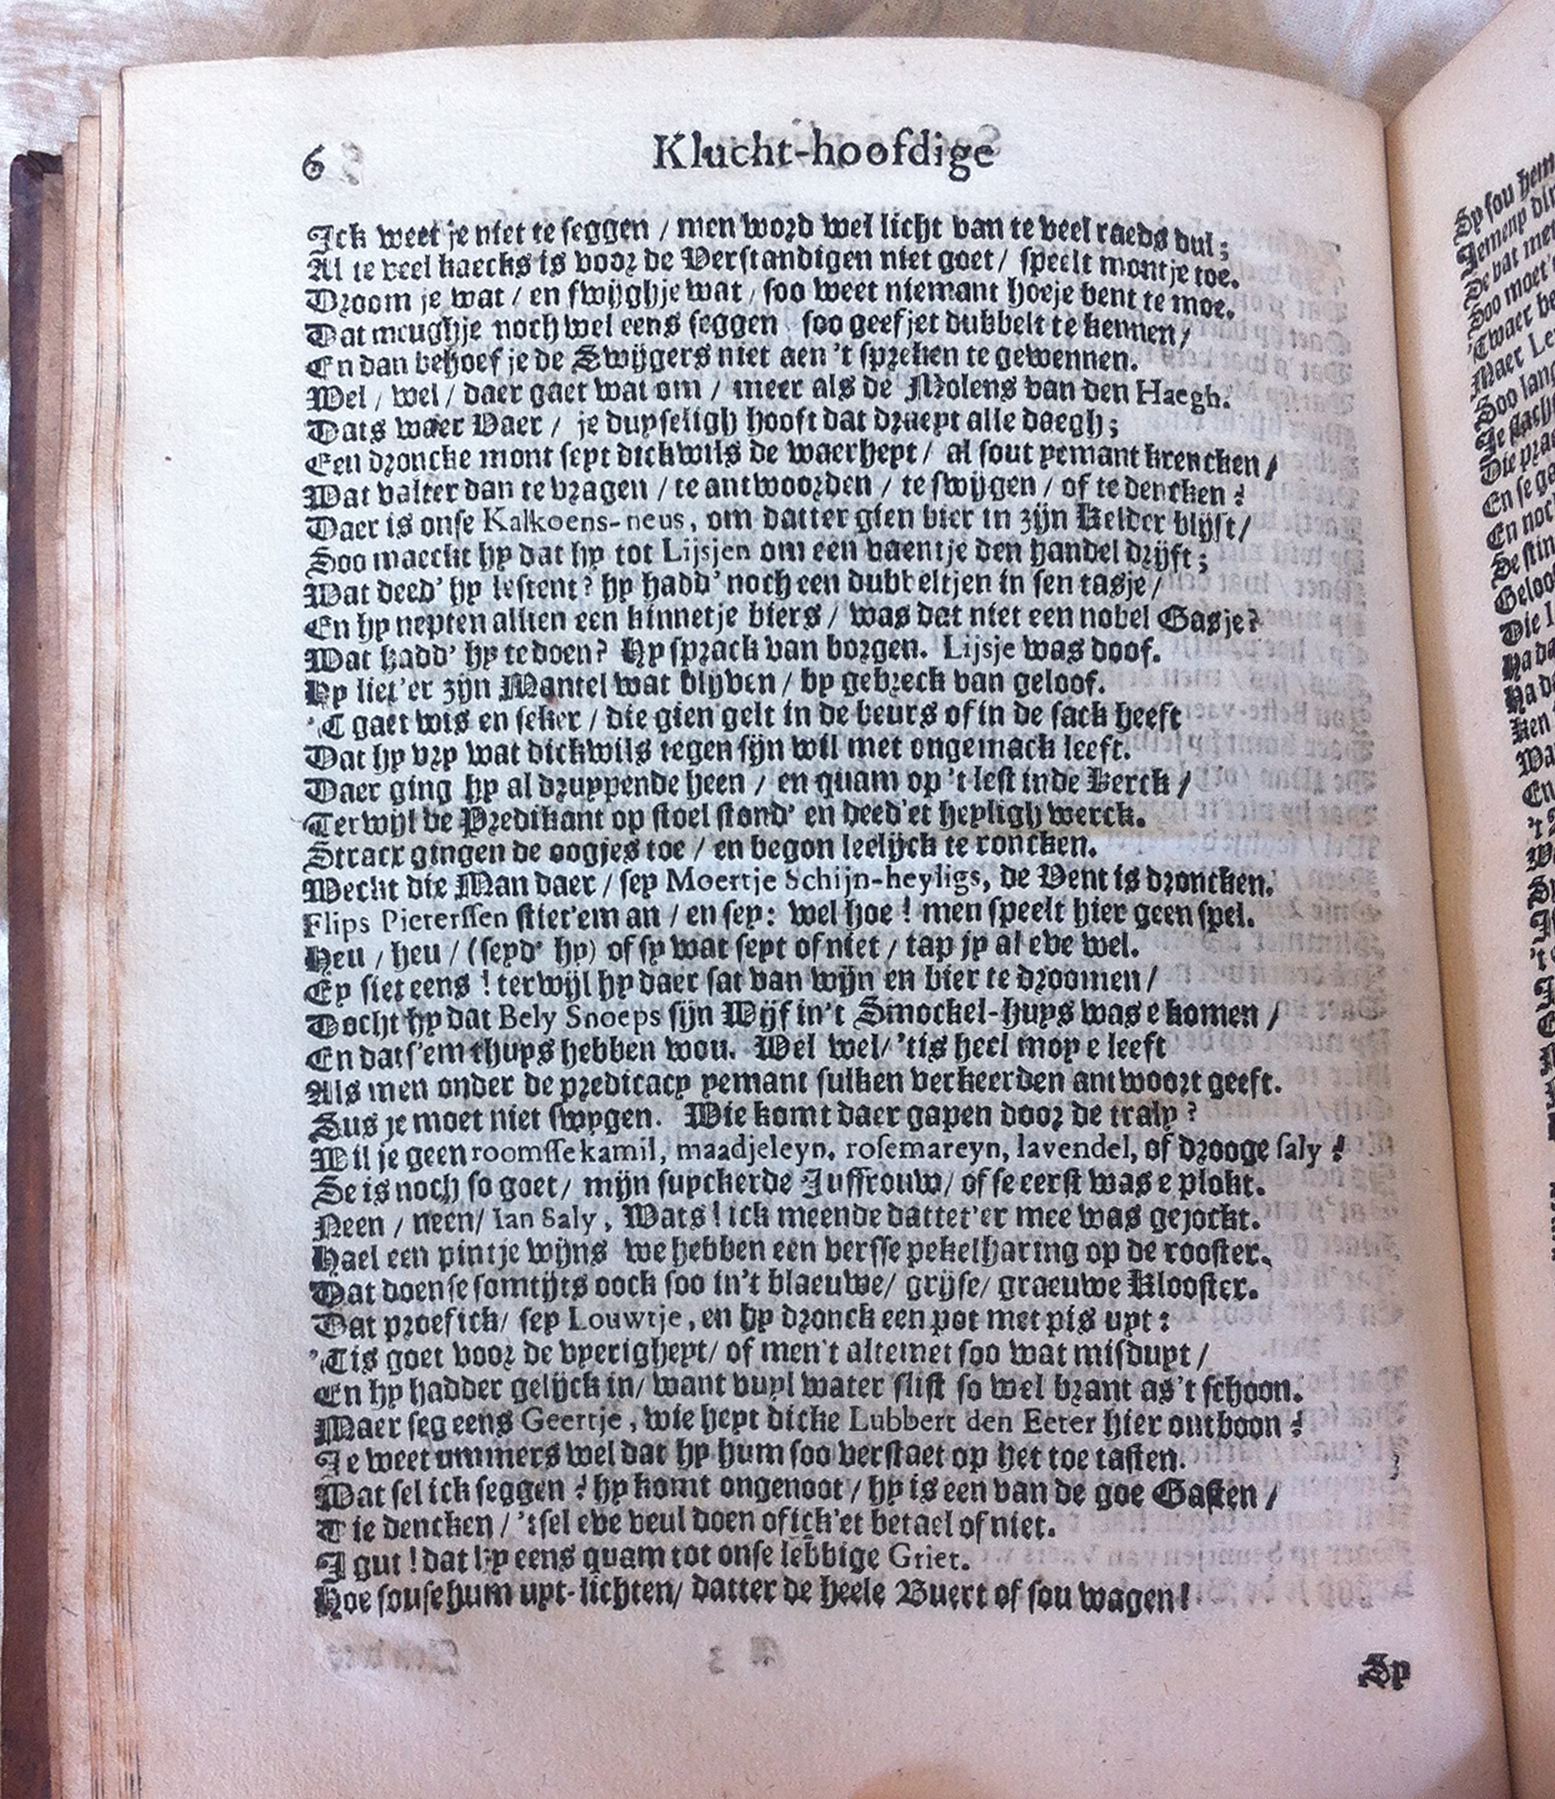 6 Klucht-hoofdige
Ick weet je niet te seggen / men word wel licht van te veel raeds dul;
Al te veel kaecks is voor de Verstandigen niet goet / speelt mont je toe.
Droom je wat / en swijghje wat / soo weet niemant hoeje bent te moe.
Dat meughje noch wel eens seggen soo geef jet dubbelt te kennen /
En dan behoef je de Swijgers niet aen 't spreken te gewennen.
Wel / wel / daer gaet wat om / meer als de Molens van den Haegh.
Dats waer Vaer / je duyseligh hooft dat draeyt alle daegh;
Een droncke mont seyt dickwils de waerheyt / al sout yemant krencken /
Wat valter dan te vragen / te antwoorden / te swijgen / of te dencken?
Daer is onse Kalkoens-neus, om datter gien bier in zijn Kelder blijft /
Soo maeckt hy dat hy tot Lijsjen om een vaentje den handel drijft;
Wat deed' hy lestent? hy hadd' noch een dubbeltjen in sen tasje /
En hy neyten allien een kinnetje biers / was dat niet een nobel Gasje?
Wat hadd' hy te doen? Hy sprack van borgen. Lijsje was doof.
Hy liet'er zijn Mantel wat blijven / by gebreck van geloof.
'T gaet wis en seker / die gien gelt in de beurs of in de sack heeft
Dat hy vry wat dickwils tegen sijn wil met ongemack leeft.
Daer ging hy al druppende heen / en quam op 't lest inde Kerck /
Terwijl de Predikant op stoel stond' en deed'et heyligh werck.
Stracx gingen de oogjes toe / en begon leelijck te roncken.
Weckt die Man daer / sey Moertje Schijn-heyligs, de Vent is droncken.
Flips Pieterssen stier'em an / en sey: wel hoe! men speelt hier geen spel.
Heu / heu / (seyd' hy) of jy wat seyt of niet / tap jy al eve wel.
Ey siet eens! terwijl hy daer sat van wijn en bier te droomen /
Docht hy dat Bely Snoeps sijn Wijf in't Smockel-huys was e komen /
En dats'em thuys hebben wou. Wel wel / 'tis heel moy e leeft
Als men onder de predicacy yemant sulken verkeerden antwoort geeft.
Sus je moet niet swygen. Wie komt daer gapen door de traly?
Wil je geen roomsse kamil, maadjeleyn, rosemareyn, lavendel, of drooge saly?
Se is noch so goet / mijn suyckerde Juffrouw / of se eerst was e plokt.
Neen / neen / Ian Saly, Wats! ick meende dattet'er mee was gejockt.
Hael een pintje wijns we hebben een versse pekelharing op de rooster.
Dat doense somtijts oock soo in't blaeuwe / grijse / graeuwe Klooster.
Dat proef ick / sey Louwtje, en hy dronck een pot met pis uyt:
'Tis goet voor de vyerigheyt / of men't altemet soo wat misduyt /
En hy hadder gelijck in / want vuyl water slist so wel brant as't schoon.
Maer seg eens Geertje, wie heyt dicke Lubbert den Eeter hier ontboon?
Je weet ummers wel dat hy hum soo verstaet op het toe tasten.
Wat sel ick seggen? hy komt ongenoot / hy is een van de goe Gasten /
Die dencken / 'tsel eve veul doen of ick'et betael of niet.
I gut! dat hy eens quam tot onse lebbige Griet.
Hoe souse hum uyt-lichten / datter de heele Buert of sou wagen!
Sy